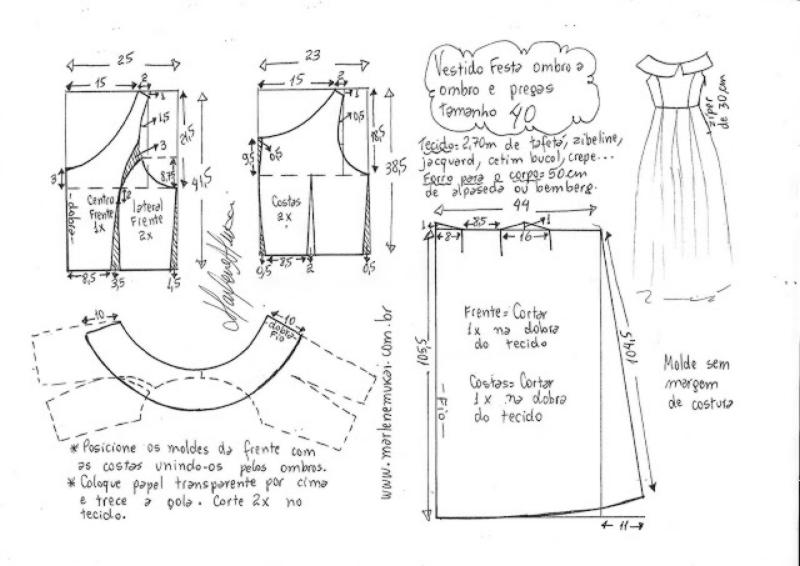 25
15
2
1
1,5
3
21,5
41,5
8,75
3
2
-dobra-
Centro
Frente
1x
lateral
Frente
2x
8,5
3,5
1,5
23
15
2
1
0,5
18,5
38,5
9,5
0,5
Costas
2x
0,5
8,5
2
0,5
Vestido Festa ombro a
ombro e pregas
Tamanho 40
Tecido= 2,70m de tafetá, zibeline,
jacquard, cetim bucol, crepe...
Forro para o corpo= 50cm
de alpaseda ou bemberg.
zíper
de 30,cm
44
1
8,5
1
8
16
105,5
104,5
Frente= Cortar
1x na dobra
do tecido
Costas= Cortar
1x na dobra
do tecido
-Fio-
11
Molde sem
margem
de costura
10
10
-dobra-
Fio
* Posicione os moldes da frente com
as costas unindo-os pelos ombros.
* Coloque papel transparente por cima
e trece a gola. Corte 2x no
tecido.
Marlene Mukai
www.marlenemukai.com.br